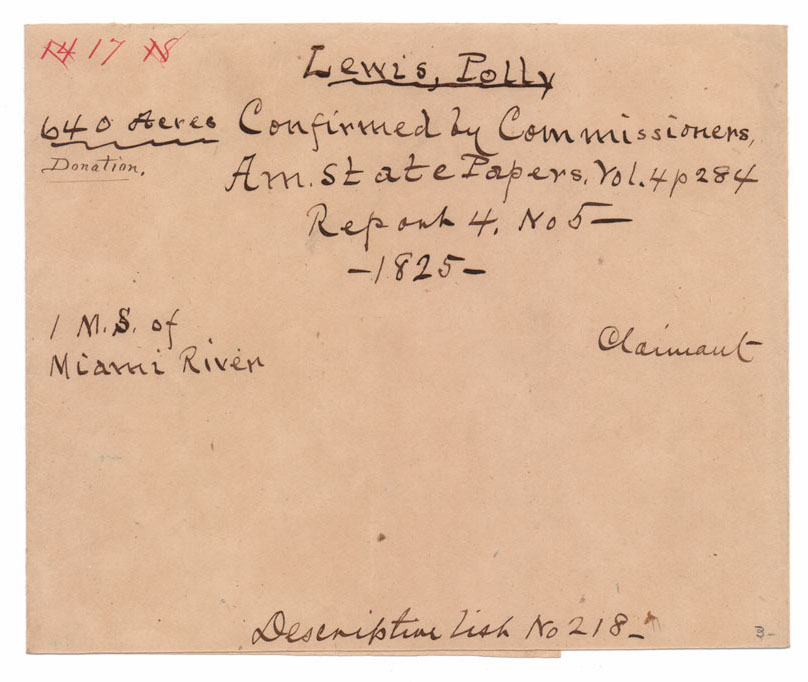 14 17 18
Lewis, Polly
640 Acres
Donation.
Confirmed by Commissioners,
Am. State Papers, Vol. 4 p 284
Report 4. No 5 —
— 1825 —
1 M. S. of
Miami River
Claimant
Descriptive list No 218 –